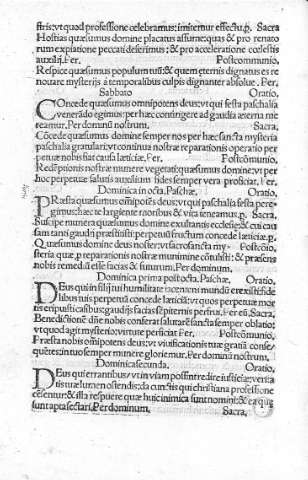 stris: vt quod professione celebramus: imitemur effectu. p. Sacra
Hostias quæsumus domine placatus assume: quas & pro renato
rum expiatione peccati deferimus: & pro acceleratione cœlestis
auxilij. Per. Postcommunio,
Respice quæsumus populum tuū: & quem eternis dignatus es re
nouare mysterijs a temporalibus culpis dignanter absolue. Per.
Sabbato Oratio,
COncede quæsumus omnipotens deus: vt qui festa paschalia
venerādo egimus: per hæc contingere ad gaudia æterna me
reamur. Per dominū nostrum, Sacra,
Cōcede quæsumus domine semper nos per hæc sancta mysteria
paschalia gratulari: vt continua nostræ reparationis operatio per
petuæ nobis fiat causa læticiæ. Per. Postcōmunio,
Redēptionis nostræ munere vegetati quæsumus domine: vt
hoc perpetuæ salutis auxilium fides semper vera proficiat. Per.
Dominica in octa. Paschæ, Oratio,
PRæsta quæsumus omīpotēs deus: vt qui paschalia festa pere-
gimus: hæc te largiente moribus & vita teneamus. p. Sacra,
Suscipe munera quæsumus domine exultantis ecclesiæ: & cui cau
sam tanti gaudij præstitisti: perpetuū fructum concede læticiæ. p.
Quæsumus domine deus noster: vt sacrosancta my- Postcōio,
steria quæ p reparationis nostræ munimine cōtulisti: & præsens
nobis remediū esse facias & futurum. Per dominum.
Dominica prima post octa. Paschæ, Oratio,
DEus qui in filij tui humilitate iacentem mundū erexisti: fide
libus tuis perpetuā concede læticiā: vt quos perpetuæ mor
tis eripuisti casibus: gaudijs facias sēpiternis perfrui. Per eū, Sacra,
Benedictionē dñe nobis conferat salutarē sancta semper oblatio:
vt quod agit mysterio: virtute perficiat. Per. Postcōmunio,
Præsta nobis omīpotens deus: vt viuificationis tuæ gratiā conse-
quētes: in tuo semper munere gloriemur. Per dominū nostrum,
Dominica secunda, Oratio,
DEus qui errantibus: vt in viam possint redire iusticiæ: verita
tis tuæ lumen ostendis: da cunctis qui christiana professione
cēsentur: & illa respuere quæ huic inimica sunt nomini: & ea quę
sunt apta sectari. Per dominum, Sacra,